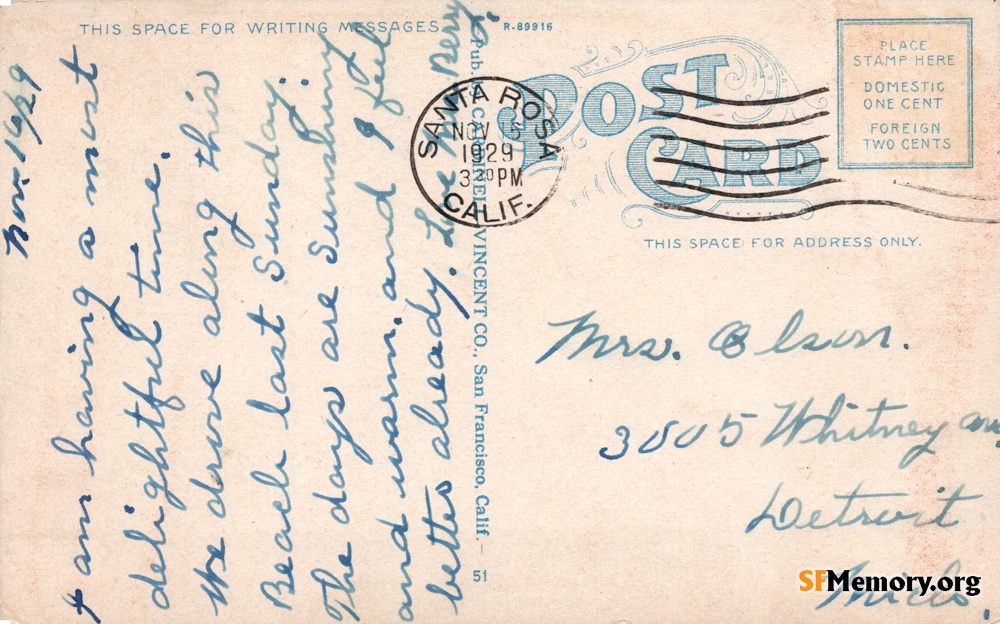 THIS SPACE FOR WRITING MESSAGES
R-89916
Nov. 16/29
I am having a most
delightful time.
We drove along this
Beach last Sunday.
The days are Sunshiny
and warm. and I feel
better already. Love
Pub. by
VINCENT CO., San Francisco, Calif.-
51
SANTA ROSA
NOV 15
1929
3 30 PM
CALIF.
POST
CARD
PLACE
STAMP HERE
DOMESTIC
ONE CENT
FOREIGN
TWO CENTS
THIS SPACE FOR ADDRESS ONLY.
Mrs. Olson.
3005 Whitney ave
Detroit
Mich.
SFMemory.org